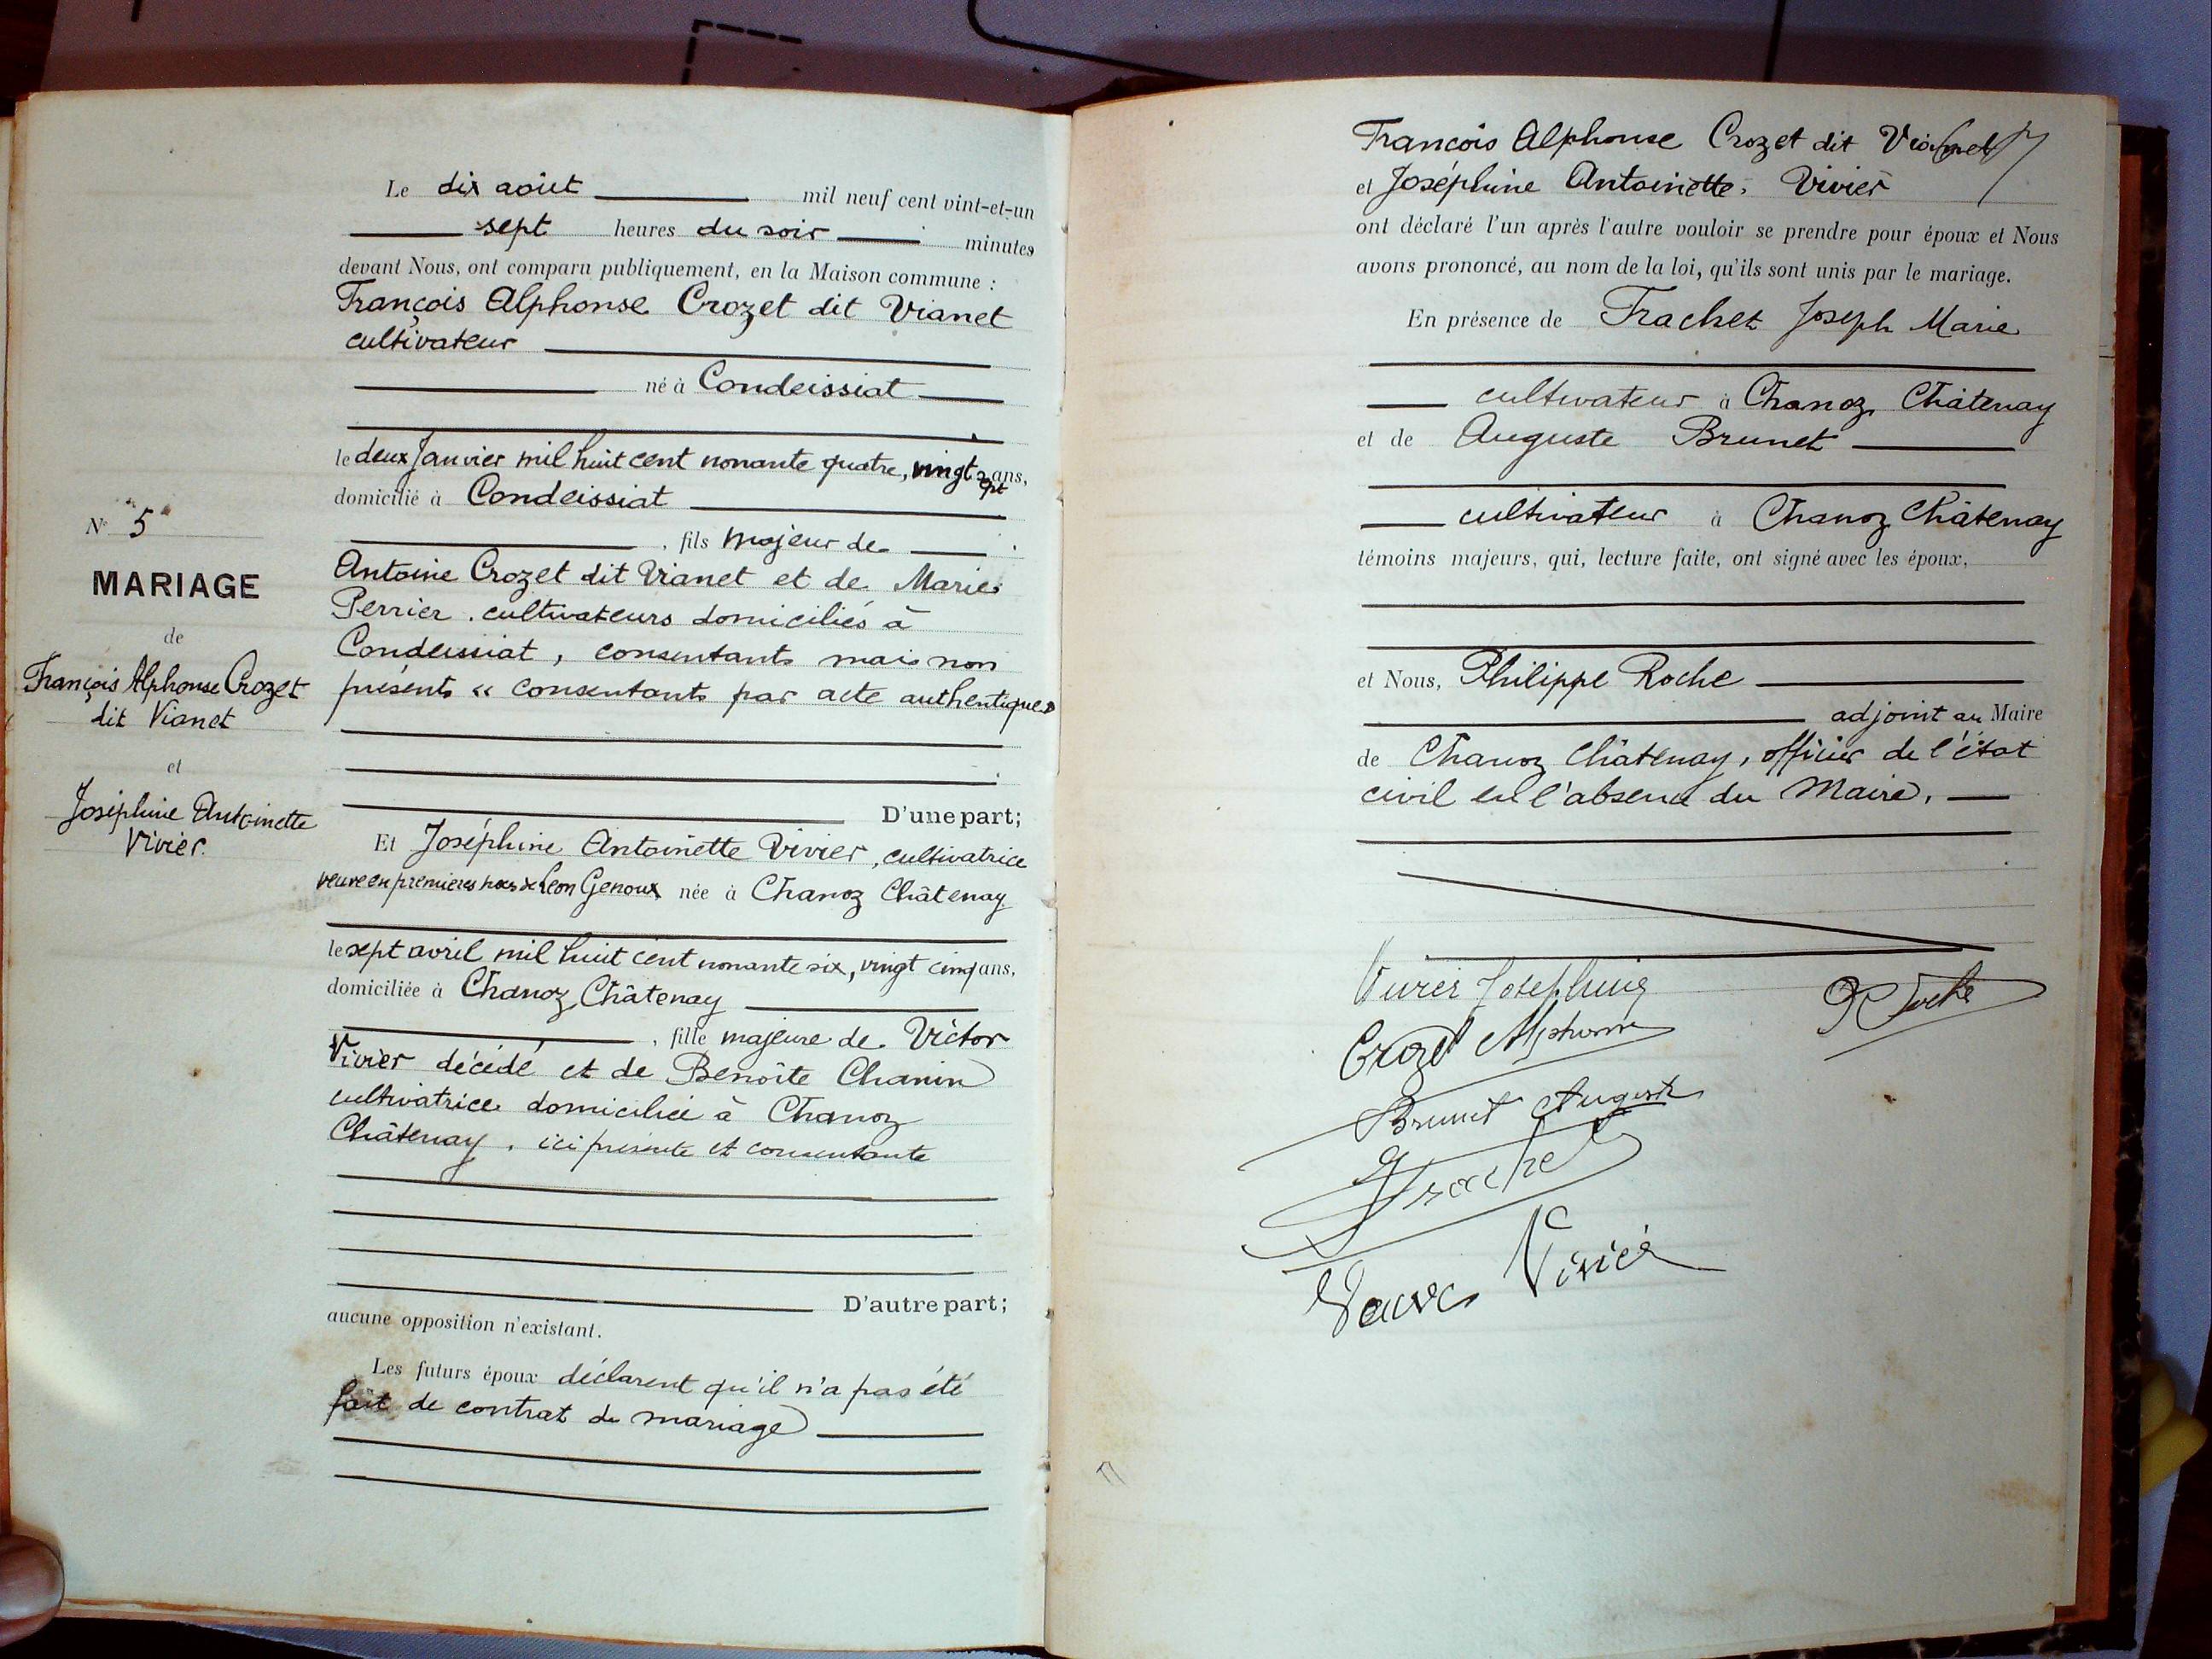 N° 5
MARIAGE
de
François Alphonse Crozet
dit Vianet
et
Joséphine Antoinette
Vivier.
Le dix août mil neuf cent vint-et-un
sept heures du soir minutes
devant Nous, ont comparu publiquement, en la Maison commune :
François Alphonse Crozet dit Vianet
cultivateur
né à Condeissiat
le deux Janvier mil huit cent nonante quatre, vingt sept ans,
domicilié à Condeissiat
, fils majeur de
Antoine Crozet dit Vianet et de Marie
Perrier. cultivateurs domiciliés à
Condeissiat, consentants mais non
présents « consentants par acte authentique »
D'une part;
Et Joséphine Antoinette Vivier, cultivatrice
veuve en premières noces de Léon Genoux née à Chanoz Châtenay
le sept avril mil huit cent nonante six, vingt cinq ans,
domiciliée à Chanoz Châtenay
, fille majeure de Victor
Vivier décédé et de Benoîte Chanin
cultivatrice domiciliée à Chanoz
Châtenay, ici présente et consentante
D'autre part;
aucune opposition n'existant.
Les futurs époux déclarent qu'il n'a pas été
fait de contrat de mariage
François Alphonse Crozet dit Vianet
et Joséphine Antoinette Vivier
ont déclaré l'un après l'autre vouloir se prendre pour époux et Nous
avons prononcé, au nom de la loi, qu'ils sont unis par le mariage.
En présence de Trachet Joseph Marie
cultivateur à Chanoz Châtenay
et de Auguste Brunet
cultivateur à Chanoz Châtenay
témoins majeurs, qui, lecture faite, ont signé avec les époux,
et Nous, Philippe Roche
adjoint au Maire
de Chanoz Châtenay, officier de l'état
civil en l'absence du Maire.
Vivier Joséphine
P Roche
Crozet Alphonse
Brunet Auguste
Trachet
Veuve Vivier